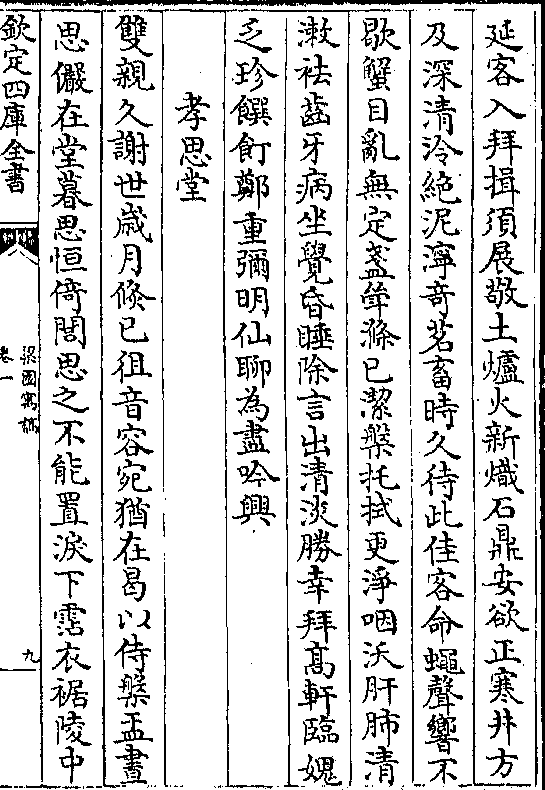 延客入拜揖須展敬土爐火新熾石鼎安欲正寒井方
及深清泠絶泥濘竒茗畜時久待此佳客命蠅聲響不
歇蟹目亂無定盞䇯滌已潔槃托拭更淨咽沃肝肺清
漱袪齒牙病坐覺昏睡除言出清淡勝幸拜髙軒臨媿
乏珍饌飣鄭重彌明仙聊為盡吟興
孝思堂
雙親久謝世歳月倐已徂音容宛猶在曷以侍槃盂晝
思儼在堂暮思恒倚閭思之不能置淚下霑衣裾陵中
欽定四庫全書
梁園寓稿
卷一
九